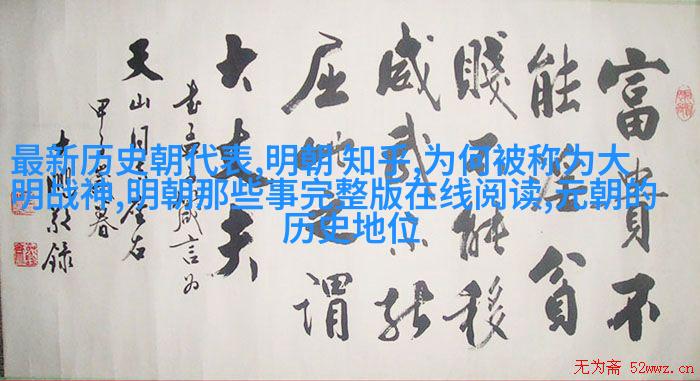 富貴不
能淫貧
賤不能移
威武不能
屈此之謂
大丈夫
书孟子箴言为
天山同志座右
最新历史朝代表,明朝 知乎,为何被称为大
明战神,明朝那些事完整版在线阅读,元朝的
历史地位
无为斋 52wwz.cn